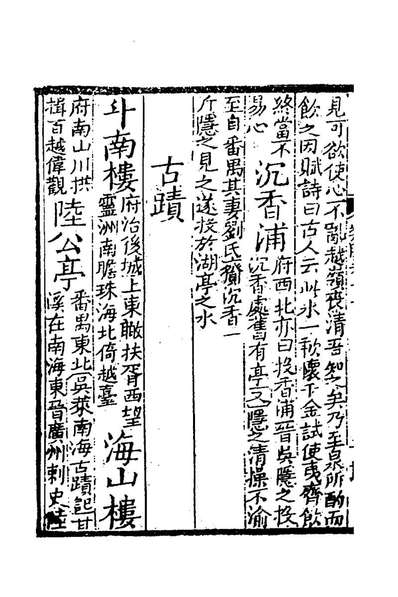 見可欲使心不亂越嶺喪清吾知之矣乃至泉所酌而
飲之因賦詩曰古人云此水一歃懷千金試使夷齊飲
終當不
易心
沉香浦
府西北亦曰投香浦晉吳隱之投
沉香處舊有亭又隱之清操不渝
至自番禺其妻劉氏齎沉香一
斤隱之見之遂投於湖亭之水
古蹟
斗南樓
府治後城上東瞰扶胥西望
靈洲南瞻珠海北倚越臺
海山樓
府南山川拱
揖百越偉觀
陸公亭
番禺東北吳萊南海古蹟記甘
溪在南海東晉廣州刺史陸